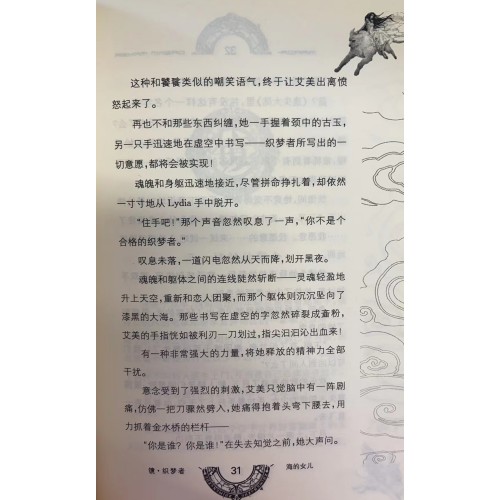 这种和饕餮类似的嘲笑语气，终于让艾美出离愤
怒起来了。
再也不和那些东西纠缠，她一手握着颈中的古玉，
另一只手迅速地在虚空中书写——织梦者所写出的一
切意愿，都将会被实现！
魂魄和身躯迅速地接近，尽管拼命挣扎着，却依然
一寸寸地从 Lydia 手中脱开。
“住手吧！”那个声音忽然叹息了一声，“你不是个
合格的织梦者。”
叹息未落，一道闪电忽然从天而降，划开黑夜。
魂魄和躯体之间的连线陡然斩断——灵魂轻盈地
升上天空，重新和恋人团聚，而那个躯体则沉沉坠向了
漆黑的大海。那些书写在虚空的字忽然碎裂成齑粉，
艾美的手指恍如被利刃一刀划过，指尖汩汩沁出血来！
有一种非常强大的力量，将她释放的精神力全部
干扰。
意念受到了强烈的刺激，艾美只觉脑中有一阵剧
痛，仿佛一把刀骤然劈入，她痛得抱着头弯下腰去，用
力抓着金水桥的栏杆——
“你是谁？你是谁！”在失去知觉之前，她大声问。
镜·织梦者
31
海的女儿